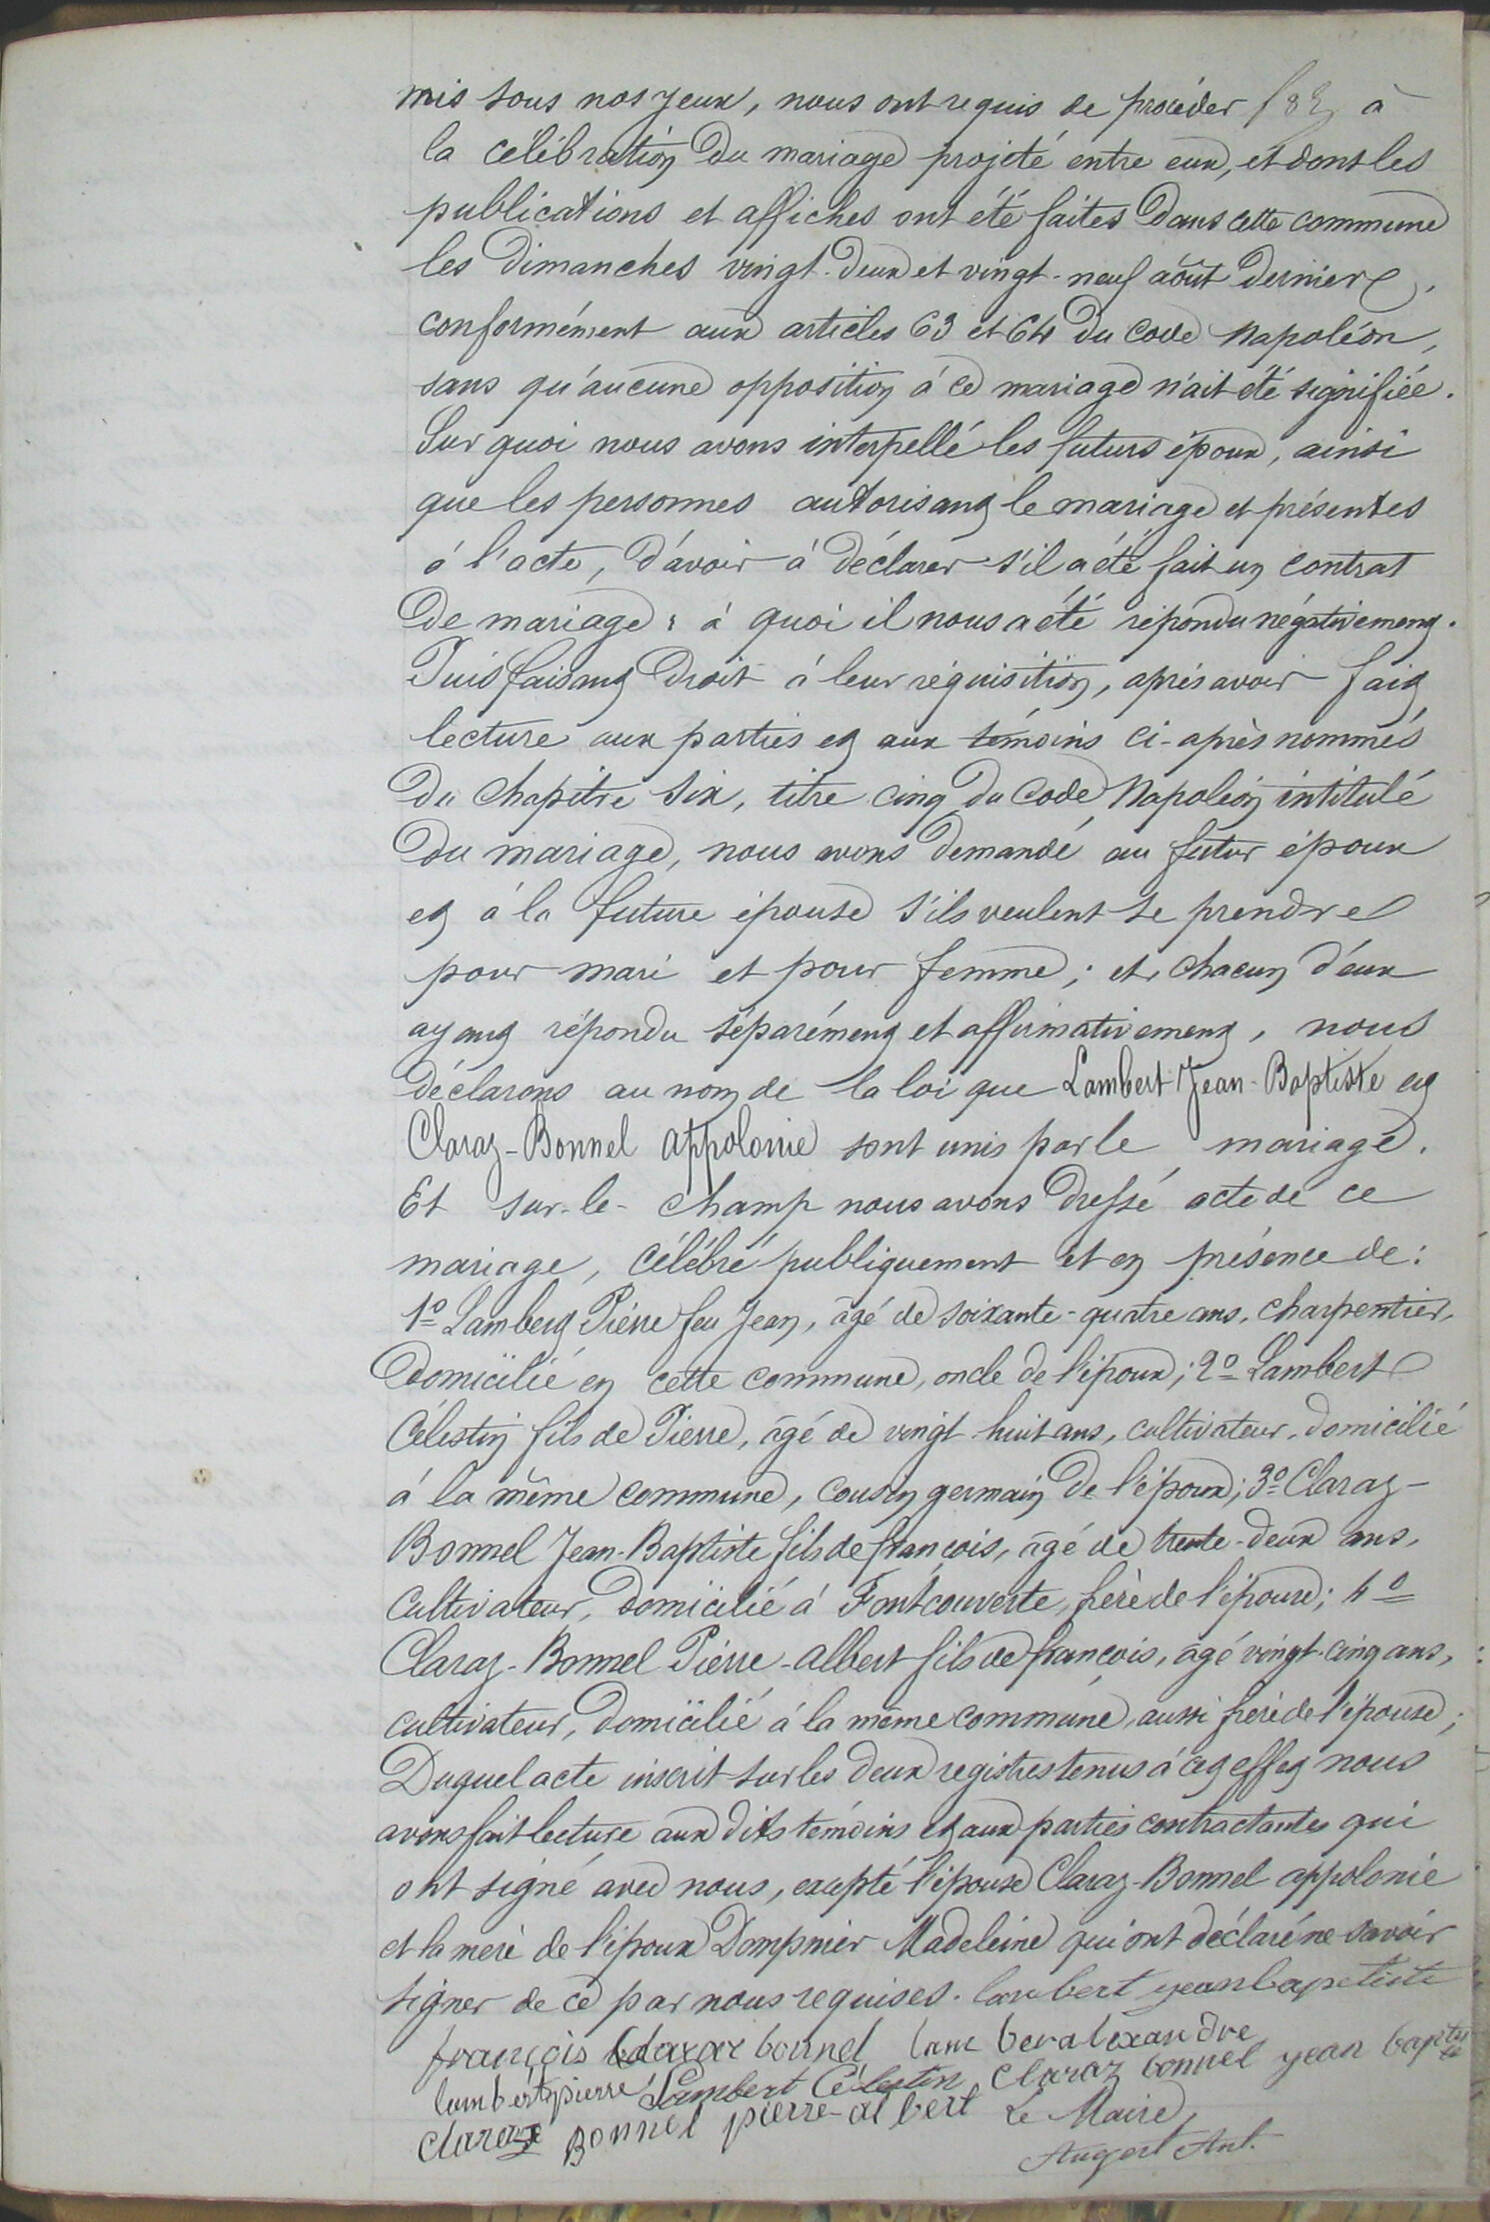 mis sous nos yeux, nous ont requis de procéder à
la célébration du mariage projeté entre eux, et dont les
publications et affiches ont été faites dans cette commune
les dimanches vingt-deux et vingt-neuf août dernier,
conformément aux articles 63 et 64 du Code Napoléon,
sans qu'aucune opposition à ce mariage n'ait été signifiée.
Sur quoi nous avons interpellé les futurs époux, ainsi
que les personnes autorisant le mariage et présentes
à l'acte, d'avoir à déclarer s'il a été fait un contrat
de mariage : à quoi il nous a été répondu négativement.
Puis faisant droit à leur réquisition, après avoir fait
lecture aux parties et aux témoins ci-après nommés
du chapitre six, titre cinq du Code Napoléon intitulé
du mariage, nous avons demandé au futur époux
et à la future épouse s'ils veulent se prendre
pour mari et pour femme ; et chacun d'eux
ayant répondu séparément et affirmativement, nous
déclarons au nom de la loi que Lambert Jean-Baptiste et
Claraz-Bonnel Appolonie sont unis par le mariage.
Et sur-le-champ nous avons dressé acte de ce
mariage, célébré publiquement et en présence de :
1º Lambert Pierre feu Jean, âgé de soixante-quatre ans, charpentier,
domicilié en cette commune, oncle de l'époux ; 2º Lambert
Célestin fils de Pierre, âgé de vingt-huit ans, cultivateur, domicilié
à la même commune, cousin germain de l'époux ; 3º Claraz-
Bonnel Jean-Baptiste fils de françois, âgé de trente-deux ans,
cultivateur, domicilié à Fontcouverte, frère de l'épouse ; 4º
Claraz-Bonnel Pierre-Albert fils de françois, âgé vingt-cinq ans,
cultivateur, domicilié à la même commune, aussi frère de l'épouse ;
Duquel acte inscrit sur les deux registres tenus à cet effet nous
avons fait lecture aux dits témoins et aux parties contractantes qui
ont signé avec nous, excepté l'épouse Claraz-Bonnel appolonie
et la mère de l'époux Dompnier Madeleine qui ont déclaré ne savoir
signer de ce par nous requises. lambert yeanbaptiste
françois claraz bonnel lamberalexandre
lambertpierre Lambert Célestin Claraz bonnel yean baptiste
claraz Bonnel pierre-albert Le Maire,
Augert Ant.